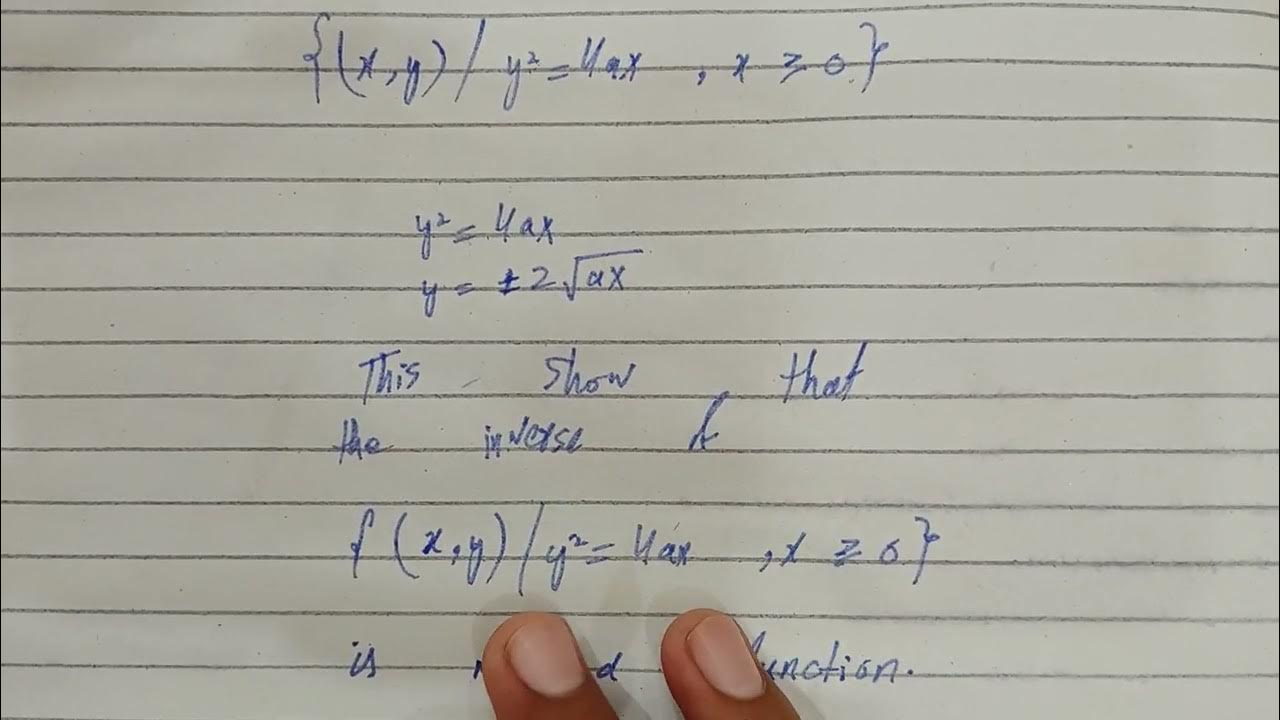 {(x,y) / y² = 4ax , x ≥ 0}
y² = 4ax
y = ±2√ax
This show that
the inverse of
{(x,y) / y² = 4ax , x ≥ 0}
is function.